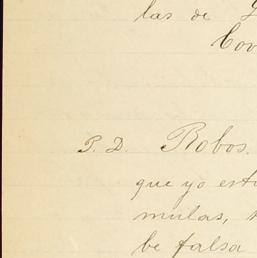 las de
P. D. Robos.
que yo est
mulas,
be falsa